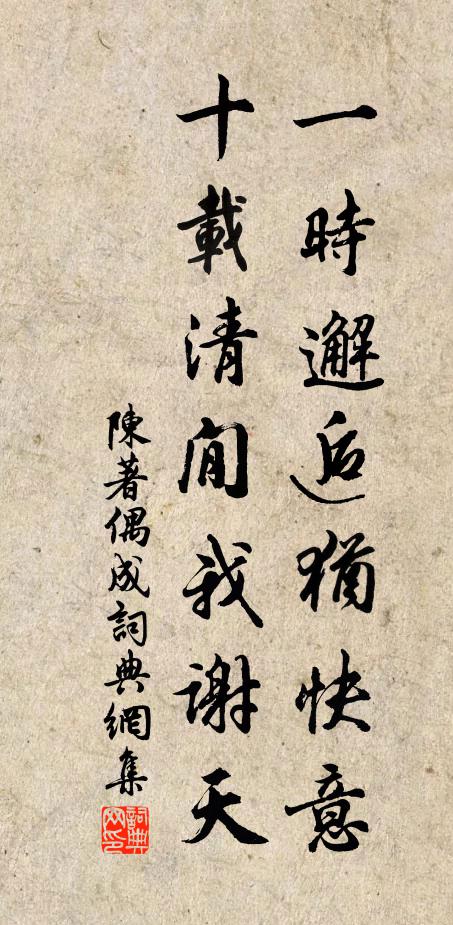 一時邂逅猶快意
十載清閒我謝天
陳著偶成詞典網集
詞典網印